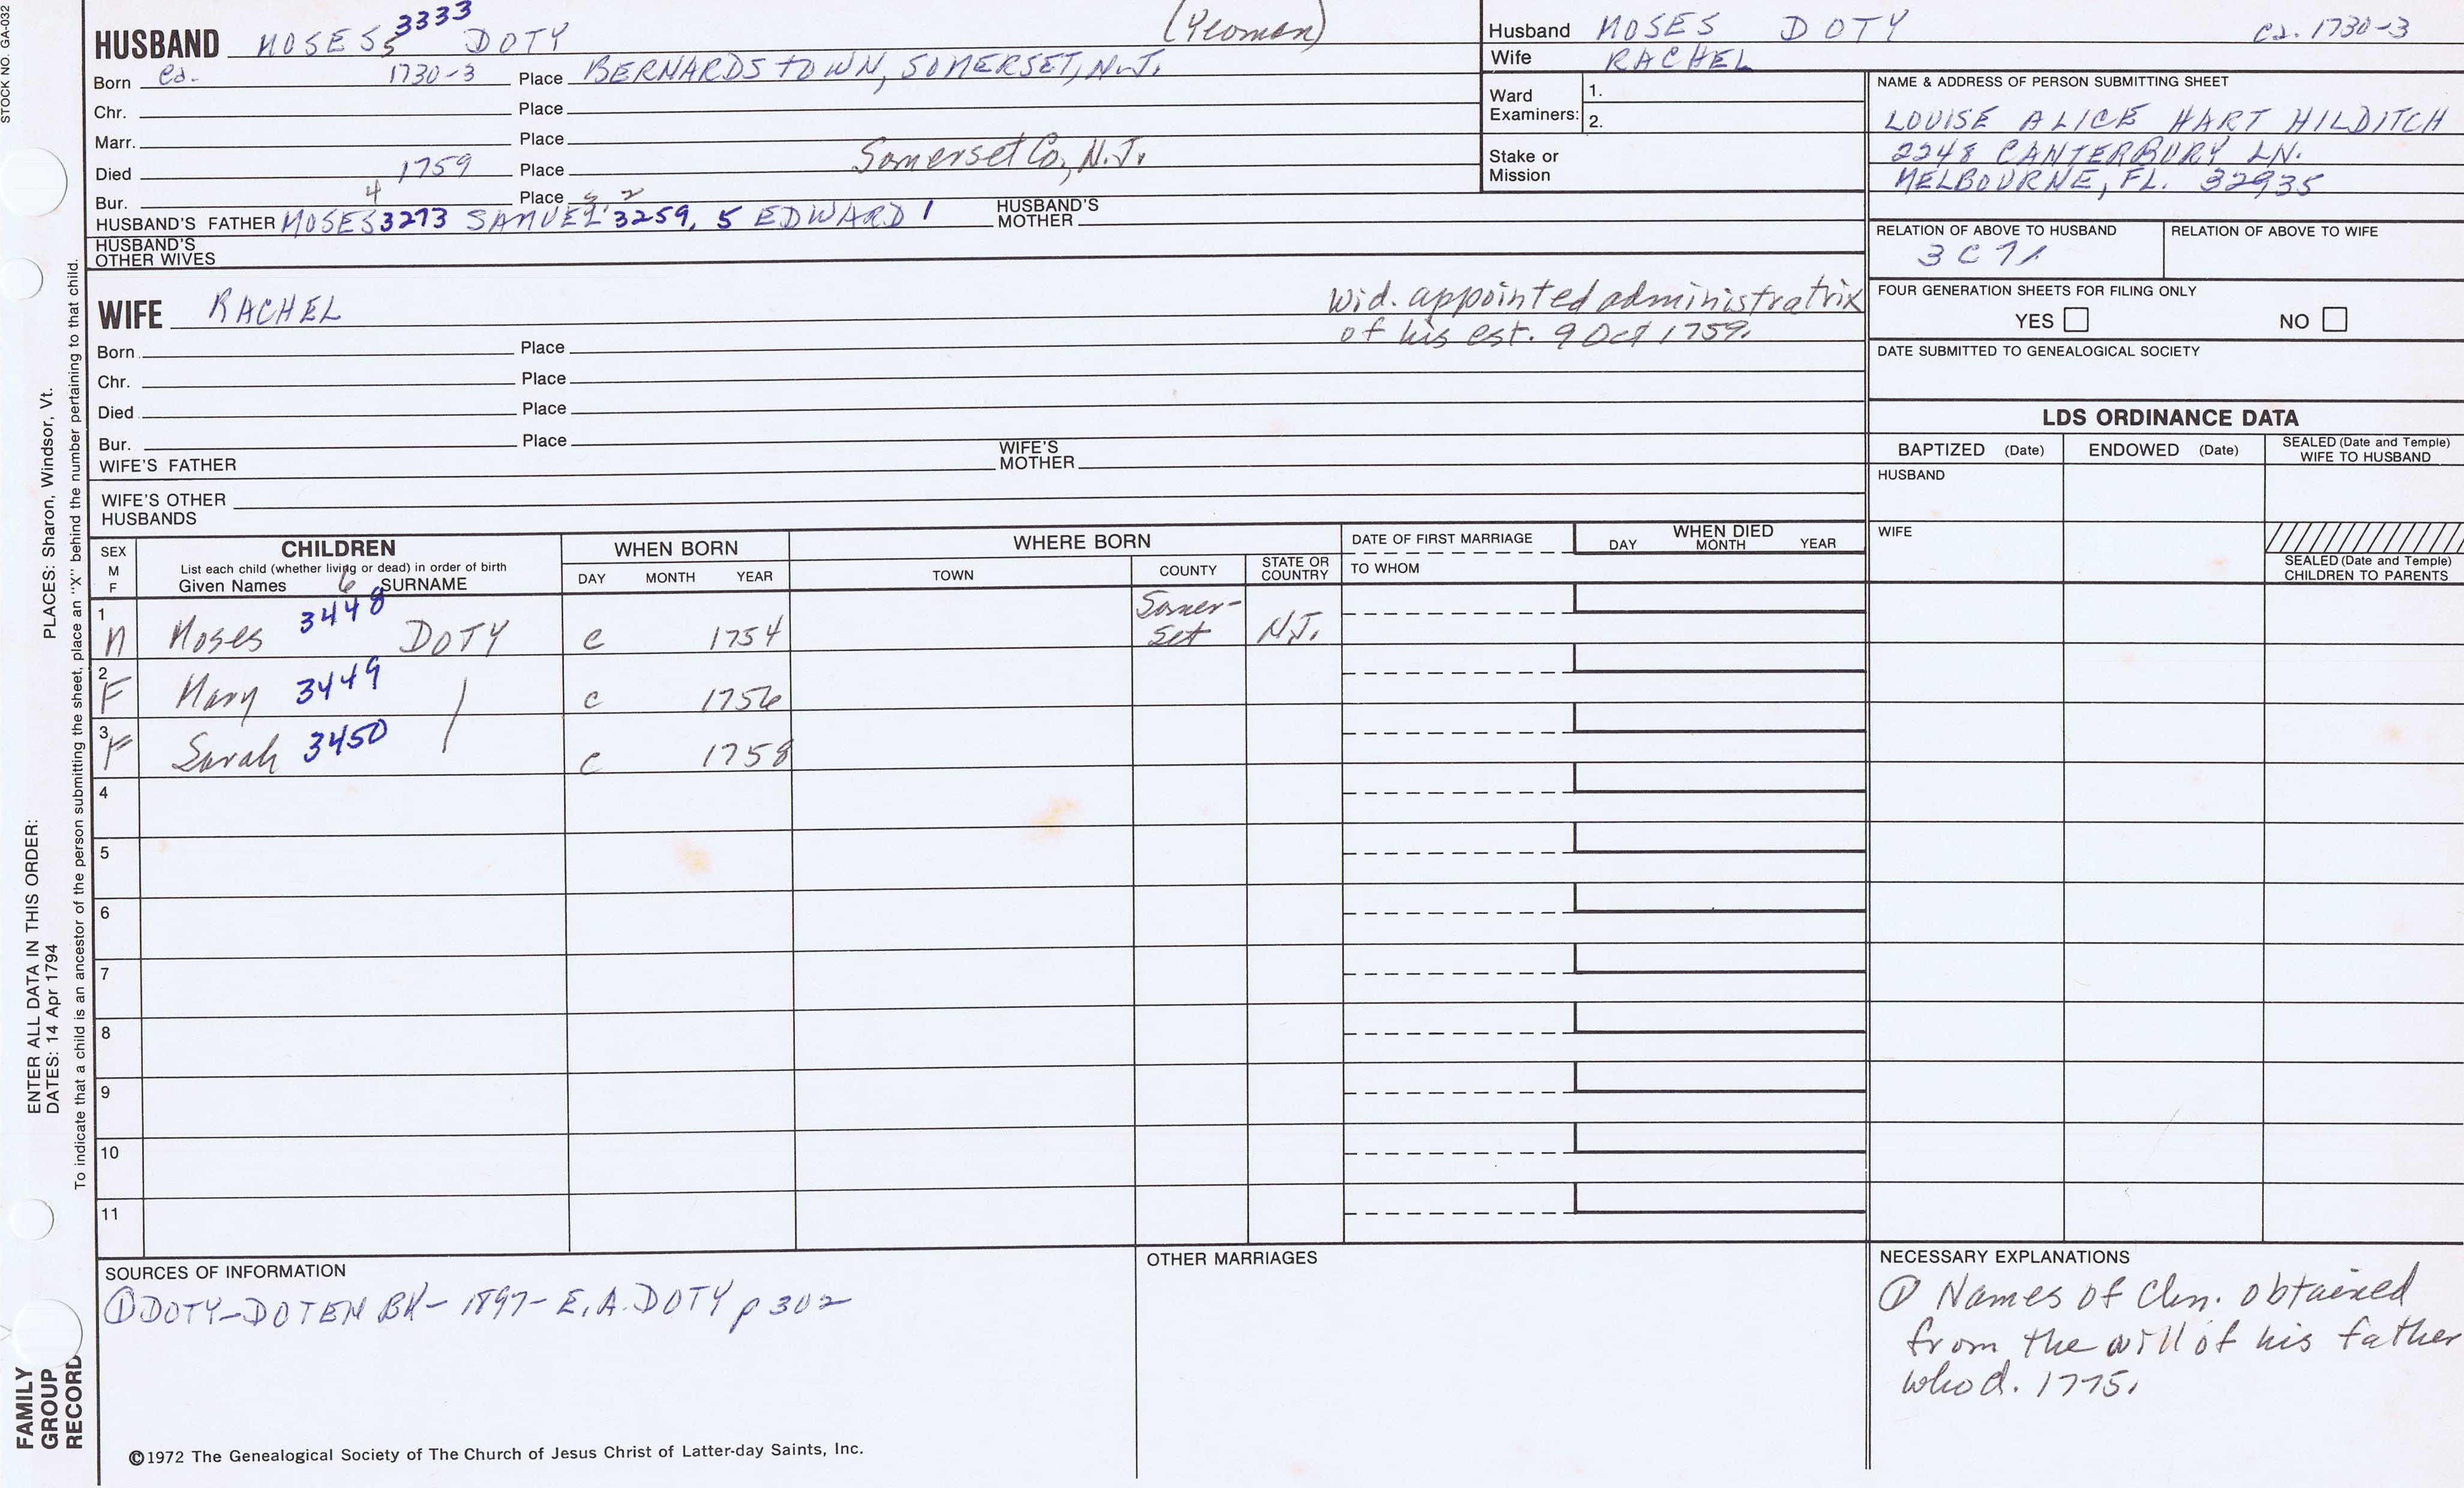 STOCK NO. GA-032
HUSBAND MOSES 5 3333 DOTY (Yeoman)
Born ca. 1730-3 Place BERNARDSTOWN, SOMERSET, N.J.
Chr. Place
Marr. Place
Died 1759 Place Somerset Co, N.J.
Bur. Place
HUSBAND'S FATHER MOSES 4 3273 SAMUEL 3259, 5 EDWARD 1 HUSBAND'S MOTHER
HUSBAND'S OTHER WIVES
WIFE RACHEL
wid. appointed administratrix
of his est. 9 Oct 1759.
Born Place
Chr. Place
Died Place
Bur. Place
WIFE'S FATHER WIFE'S MOTHER
WIFE'S OTHER HUSBANDS
Husband MOSES DOTY ca. 1730-3
Wife RACHEL
Ward Examiners: 1.
2.
Stake or Mission
NAME & ADDRESS OF PERSON SUBMITTING SHEET
LOUISE ALICE HART HILDITCH
2248 CANTERBURY LN.
MELBOURNE, FL. 32935
RELATION OF ABOVE TO HUSBAND RELATION OF ABOVE TO WIFE
3C7
FOUR GENERATION SHEETS FOR FILING ONLY
YES NO
DATE SUBMITTED TO GENEALOGICAL SOCIETY
LDS ORDINANCE DATA
BAPTIZED (Date) ENDOWED (Date) SEALED (Date and Temple) WIFE TO HUSBAND
HUSBAND
WIFE
SEALED (Date and Temple) CHILDREN TO PARENTS
SEX M F CHILDREN WHEN BORN WHERE BORN DATE OF FIRST MARRIAGE WHEN DIED
List each child (whether living or dead) in order of birth
Given Names 6 SURNAME DAY MONTH YEAR TOWN COUNTY STATE OR COUNTRY TO WHOM DAY MONTH YEAR
1 M Moses 3448 DOTY c 1754 Somer-set N.J.
2 F Mary 3449 c 1756
3 F Sarah 3450 c 1758
4
5
6
7
8
9
10
11
SOURCES OF INFORMATION
① DOTY-DOTEN BK - 1897 - E.A. DOTY p 302
OTHER MARRIAGES
NECESSARY EXPLANATIONS
① Names of Chn. obtained
from the will of his father
who d. 1775.
©1972 The Genealogical Society of The Church of Jesus Christ of Latter-day Saints, Inc.
FAMILY GROUP RECORD
ENTER ALL DATA IN THIS ORDER:
DATES: 14 Apr 1794
PLACES: Sharon, Windsor, Vt.
To indicate that a child is an ancestor of the person submitting the sheet, place an "X" behind the number pertaining to that child.